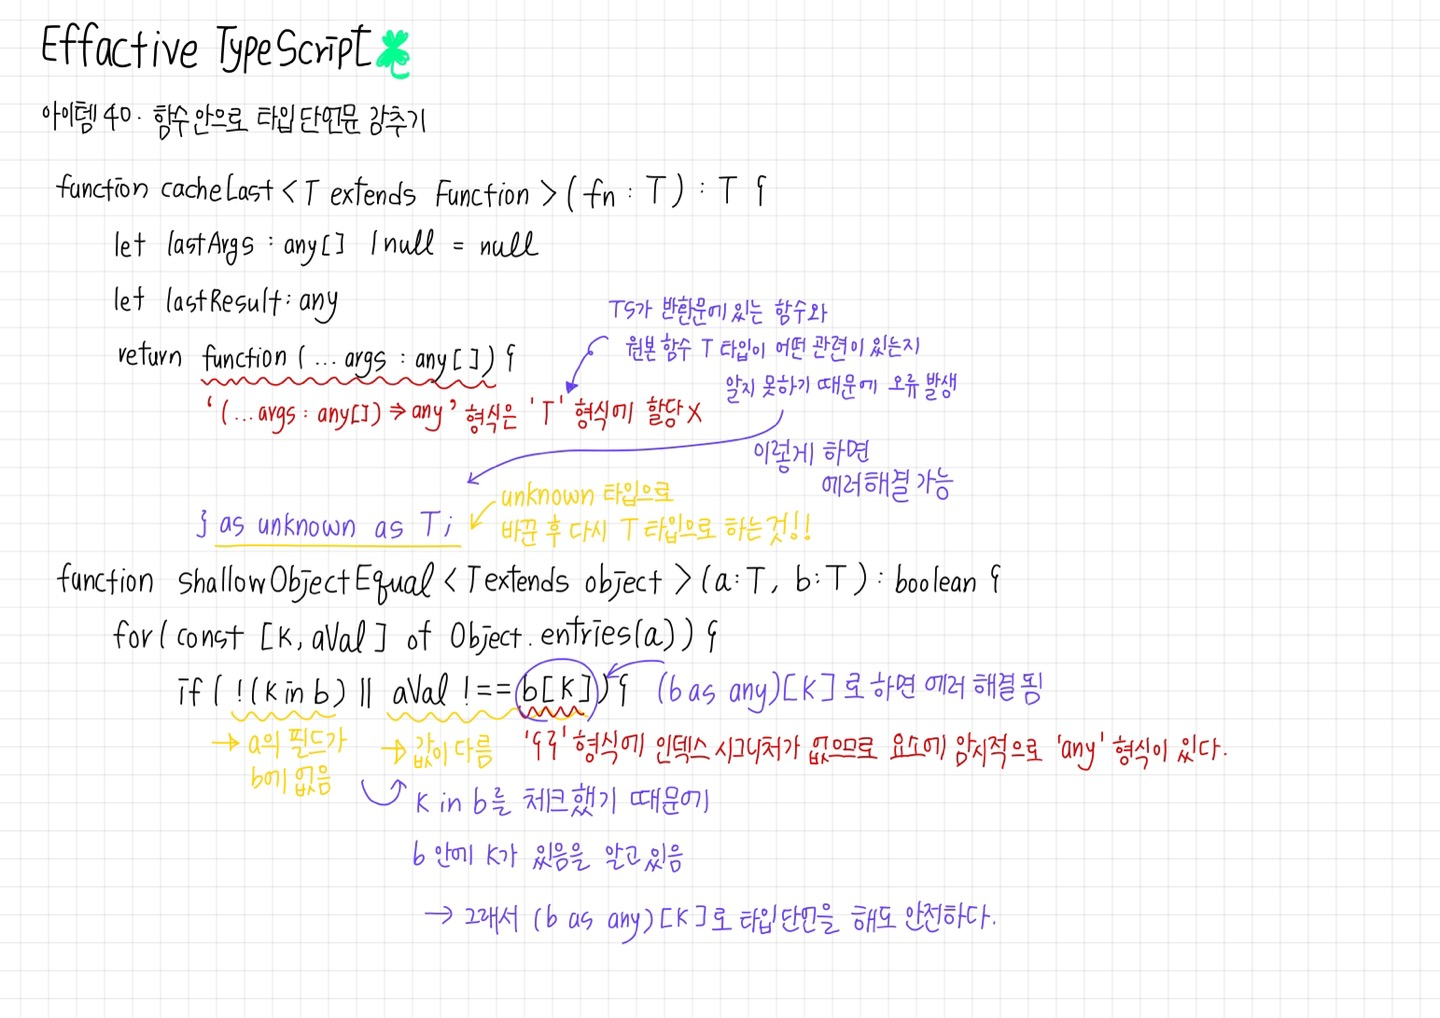 Effactive TypeScript
아이템 40. 함수 안으로 타입 단언문 감추기
function cacheLast <T extends Function>(fn : T) : T {
let lastArgs : any[] | null = null
let lastResult : any
TS가 반환문에 있는 함수와
return function (...args : any[]) {
원본 함수 T 타입이 어떤 관련이 있는지
알지 못하기 때문에 오류 발생
'(...args : any[]) => any' 형식은 'T' 형식에 할당 X
이렇게 하면
에러 해결 가능
unknown 타입으로
} as unknown as T;
바꾼 후 다시 T 타입으로 하는것!!
function shallowObjectEqual <T extends object>(a:T, b:T) : boolean {
for(const [K, aVal] of Object.entries(a)) {
if ( !(K in b) || aVal !== b[K]) {
(b as any)[K]로 하면 에러 해결됨
→ a의 필드가
b에 없음
→ 값이 다름
'{}' 형식에 인덱스 시그니처가 없으므로 요소에 암시적으로 'any' 형식이 있다.
K in b를 체크했기 때문에
b 안에 K가 있음을 알고 있음
→ 그래서 (b as any)[K]로 타입단언을 해도 안전하다.